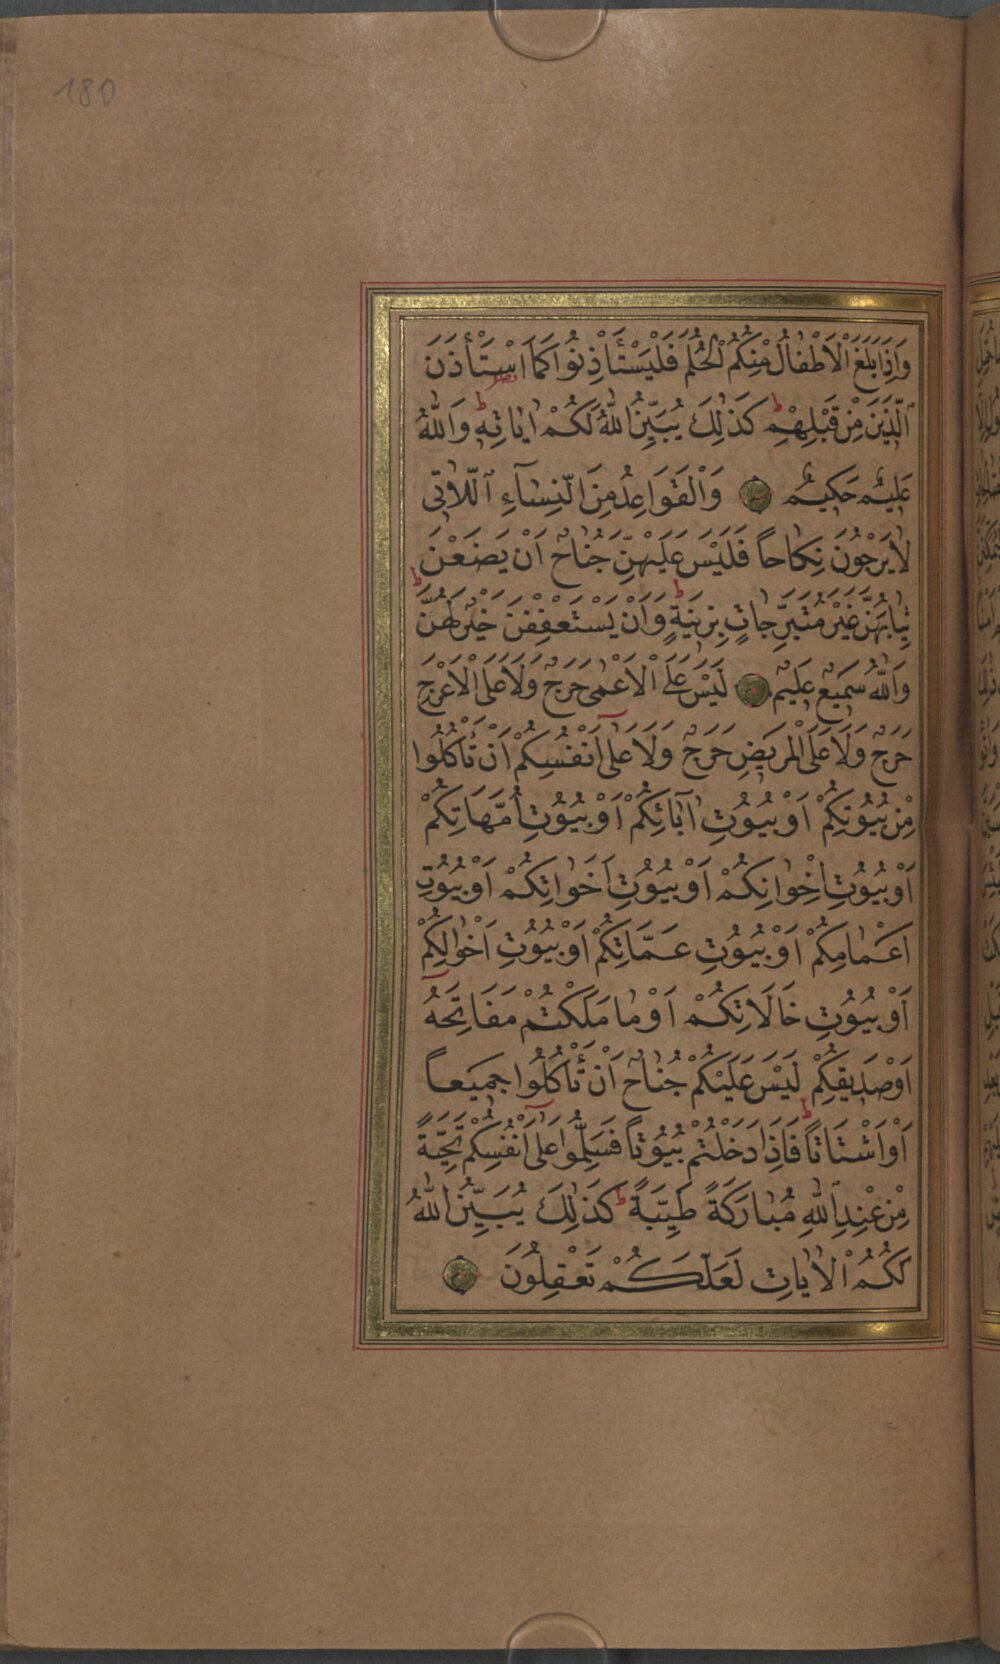 180
وَاِذَا بَلَغَ الْاَطْفَالُ مِنْكُمُ الْحُلُمَ فَلْيَسْتَأْذِنُوا كَمَا اسْتَأْذَنَ
الَّذِينَ مِنْ قَبْلِهِمْ ط كَذٰلِكَ يُبَيِّنُ اللّٰهُ لَكُمْ اٰيَاتِهِ ط وَاللّٰهُ
عَلِيمٌ حَكِيمٌ وَالْقَوَاعِدُ مِنَ النِّسَاءِ اللَّاتِي
لَا يَرْجُونَ نِكَاحاً فَلَيْسَ عَلَيْهِنَّ جُنَاحٌ اَنْ يَضَعْنَ
ثِيَابَهُنَّ غَيْرَ مُتَبَرِّجَاتٍ بِزِينَةٍ ط وَاَنْ يَسْتَعْفِفْنَ خَيْرٌ لَهُنَّ ط
وَاللّٰهُ سَمِيعٌ عَلِيمٌ لَيْسَ عَلَى الْاَعْمٰى حَرَجٌ وَلَا عَلَى الْاَعْرَجِ
حَرَجٌ وَلَا عَلَى الْمَرِيضِ حَرَجٌ وَلَا عَلٰى اَنْفُسِكُمْ اَنْ تَأْكُلُوا
مِنْ بُيُوتِكُمْ اَوْ بُيُوتِ اٰبَائِكُمْ اَوْ بُيُوتِ اُمَّهَاتِكُمْ
اَوْ بُيُوتِ اِخْوَانِكُمْ اَوْ بُيُوتِ اَخَوَاتِكُمْ اَوْ بُيُوتِ
اَعْمَامِكُمْ اَوْ بُيُوتِ عَمَّاتِكُمْ اَوْ بُيُوتِ اَخْوَالِكُمْ
اَوْ بُيُوتِ خَالَاتِكُمْ اَوْ مَا مَلَكْتُمْ مَفَاتِحَهُ
اَوْ صَدِيقِكُمْ لَيْسَ عَلَيْكُمْ جُنَاحٌ اَنْ تَأْكُلُوا جَمِيعاً
اَوْ اَشْتَاتاً ط فَاِذَا دَخَلْتُمْ بُيُوتاً فَسَلِّمُوا عَلٰى اَنْفُسِكُمْ تَحِيَّةً
مِنْ عِنْدِ اللّٰهِ مُبَارَكَةً طَيِّبَةً ط كَذٰلِكَ يُبَيِّنُ اللّٰهُ
لَكُمُ الْاٰيَاتِ لَعَلَّكُمْ تَعْقِلُونَ